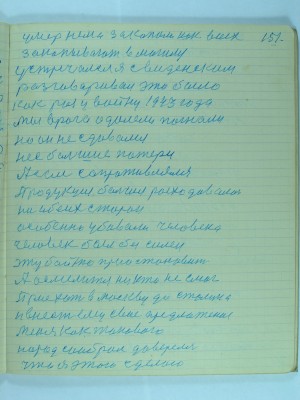 умер нема закопали как всех 151-
закапывают в могилу
устречался я с виденским
разговаривал это было
как раз у войну 1943 года
мы врага одолели погнали
но он не сдавался
не большие потери
А если сопротивлялся
Продукция большая расходовалась
на обоих сторон
особенно убивали человека
человек был бы силен
эту бойню приостановить
А осмелится никто не смог
Приехать в москву до сталина
и внести ему свое предложение
меня как такового
народ само брал доверял
что я этого сделаю